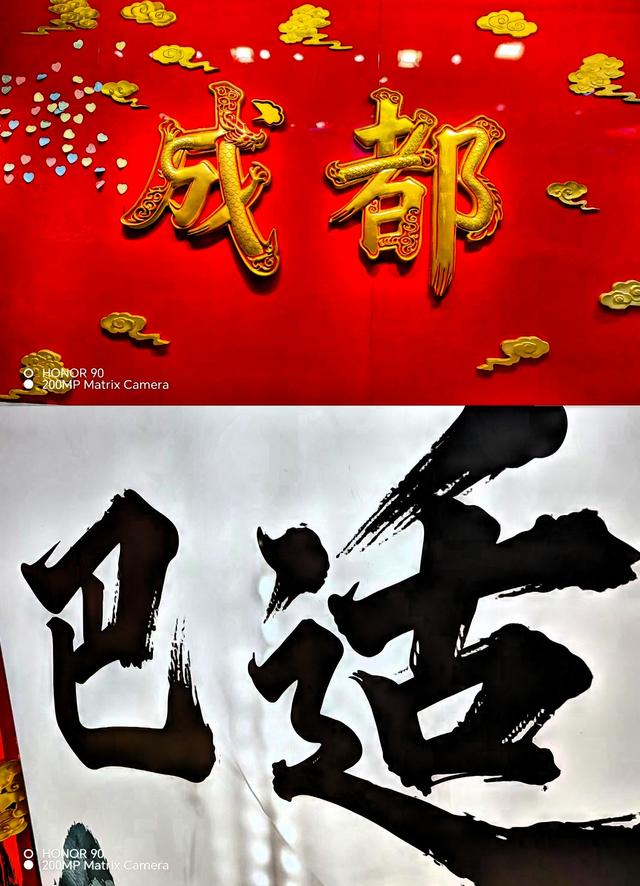 成都
HONOR 90
200MP Matrix Camera
巴适
HONOR 90
200MP Matrix Camera